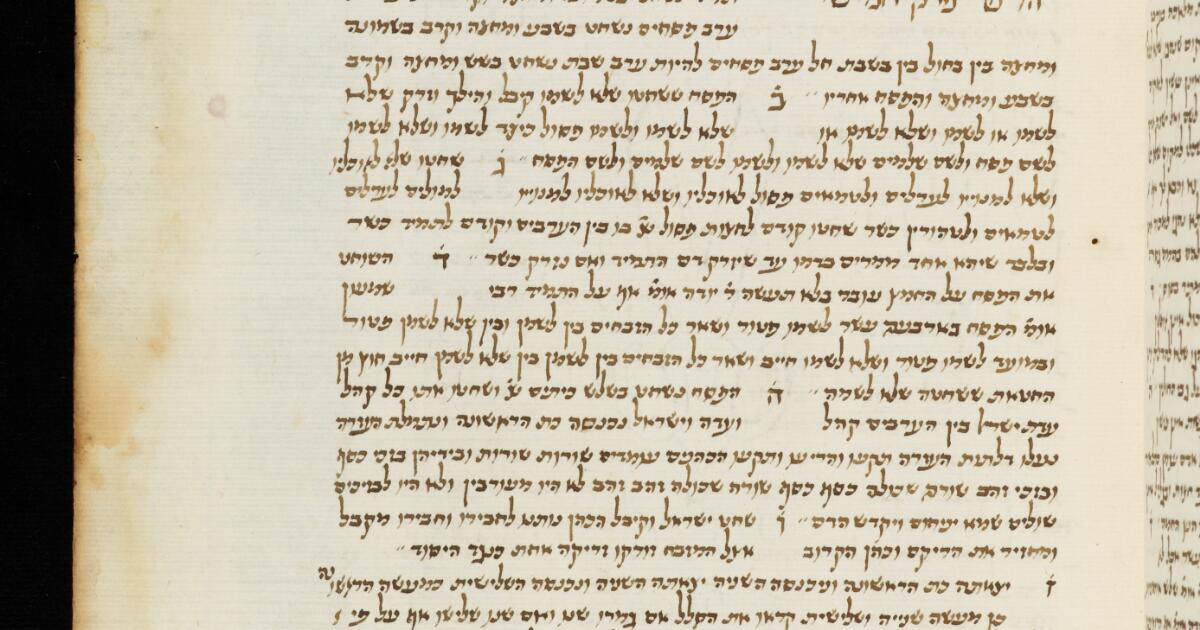 ערב פסחים נשחט בשבע ומחצה וקרב בשמונה
ומחצה בין בחול בין בשבת חל ערב פסחים להיות ערב שבת נשחט בשש ומחצה וקרב
בשבע ומחצה והפסח אחריו ב הפסח ששחטו שלא לשמו קיבל והילך וזרק שלא
לשמו או לשמו ושלא לשמו או שלא לשמו ולשמו פסול כיצד לשמו ושלא לשמו
לשם פסח ולשם שלמים שלא לשמו ולשמו לשם שלמים ולשם הפסח ג שחטו שלא לאוכליו
ושלא למנוייו לערלים ולטמאים פסול לאוכליו ושלא לאוכליו למנוייו למולים לערלים
לטמאים ולטהורין כשר שחטו קודם לחצות פסול שנ בו בין הערבים וקודם לתמיד כשר
ובלבד שיהא אחד ממריס בדמו עד שיזרק דם התמיד ואם נזרק כשר ד השוחט
את הפסח על החמץ עובר בלא תעשה ר יודה אומ אף על התמיד רבי שמעון
אומ הפסח בארבעה עשר לשמו פטור ושאר כל הזבחים בין לשמן ובין שלא לשמן פטור
ובמועד לשמו פטור ושלא לשמו חייב ושאר כל הזבחים בין לשמן בין שלא לשמן חייב חוץ מן
החטאת ששחטה שלא לשמה ה הפסח נשחט בשלש כיתים שנ ושחטו אתו כל קהל
עדת ישראל בין הערבים קהל ועדה וישראל נכנסה כת הראשונה העזרה
נעלו דלתות העזרה תקעו והריעו ותקעו הכהנים עומדים שורות שורות ובידיהן בזכי כסף
ובזכי זהב שורה שכולה כסף כסף שורה שכולה זהב זהב לא היו מעורבין ולא היו לבזיכים
שולים שמא יניחום ויקרש הדם ו שחט ישראל וקיבל הכהן נותנו לחבירו וחבירו מקבל
ומחזיר את הריקם וכהן הקרוב אצל המזבח זורקו זריקה אחת כנגד היסוד
ז יצאתה כת הראשונה ונכנסה השניה יצאתה השניה ונכנסה השלישית כמעשה הראשונה
כן מעשה שנייה ושלישית קראו את הלל אם גמרו שנו ואם שנו שלישו אף על פי